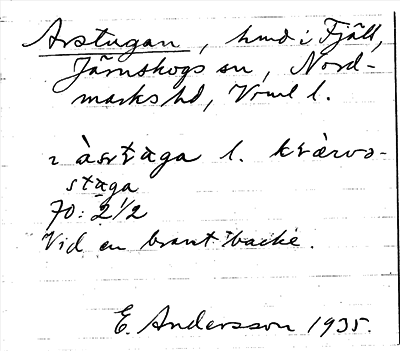 Arstugan, hmd i Fjäll,
Järnskogs sn, Nord-
marks hd, Vrml l.
àsrtàga l. kvàrvo-
stàga
70: 2 1/2
Vid en brant backe.
E. Andersson 1935.